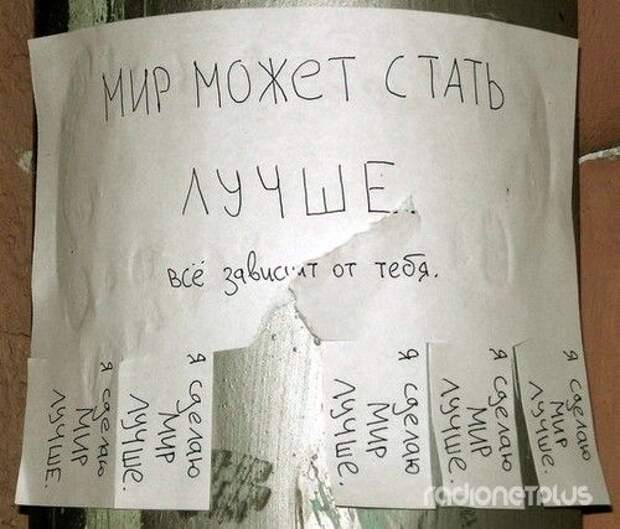 МИР МОЖЕТ СТАТЬ
ЛУЧШЕ...
всё зависит от тебя.
я сделаю
мир
лучше.
я сделаю
мир
лучше.
я сделаю
мир
лучше.
я сделаю
мир
лучше.
я сделаю
мир
лучше.
radionetplus